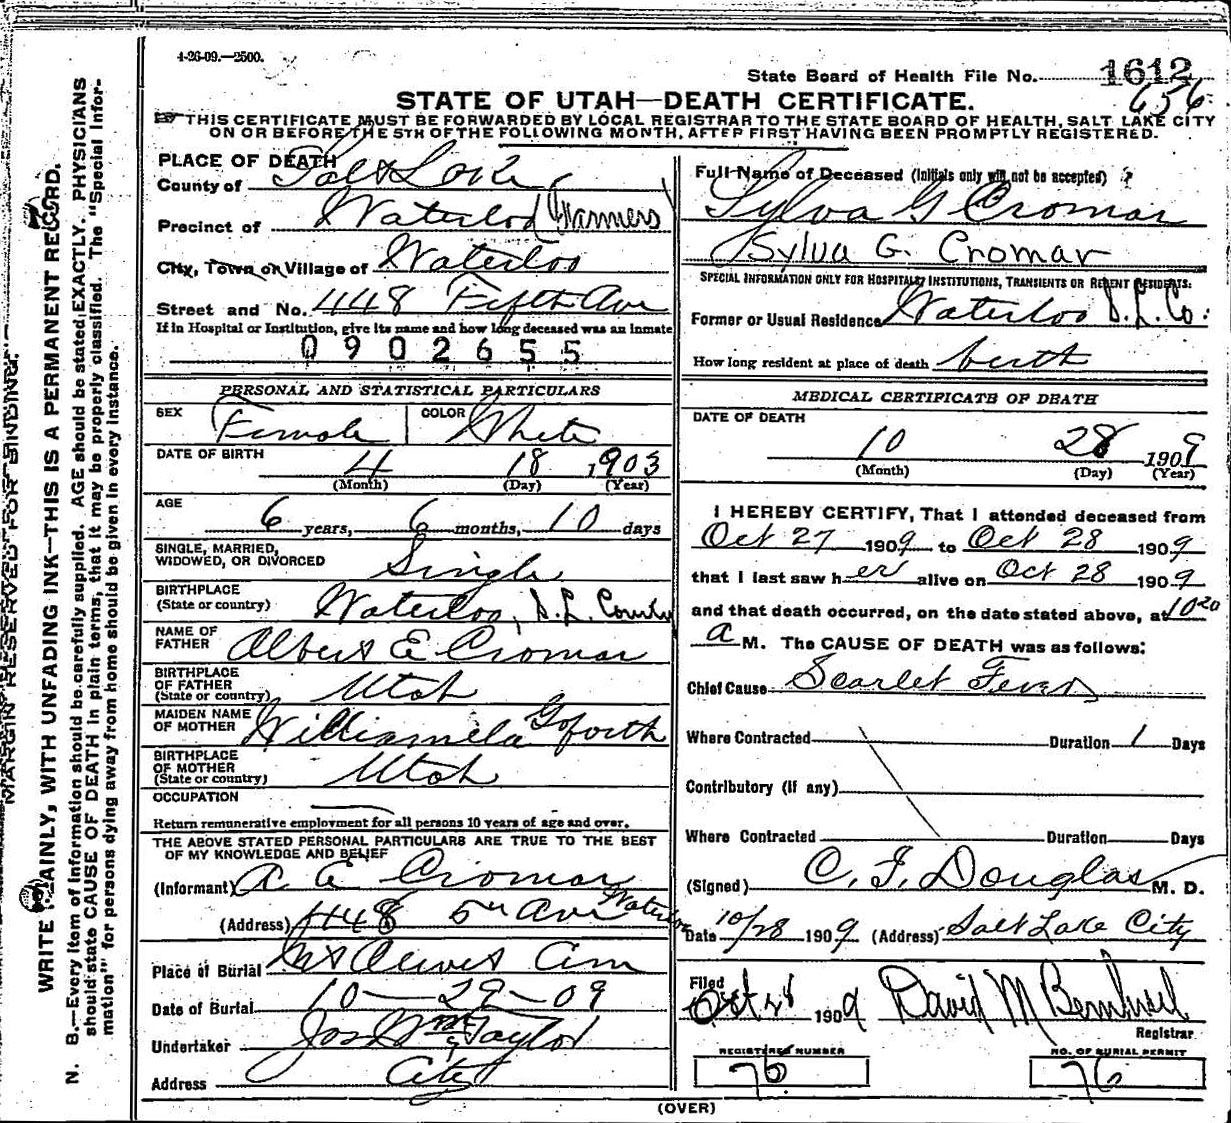 4-26-09.—2500.
State Board of Health File No. 1612
656
STATE OF UTAH—DEATH CERTIFICATE.
THIS CERTIFICATE MUST BE FORWARDED BY LOCAL REGISTRAR TO THE STATE BOARD OF HEALTH, SALT LAKE CITY
ON OR BEFORE THE 5TH OF THE FOLLOWING MONTH, AFTER FIRST HAVING BEEN PROMPTLY REGISTERED.
PLACE OF DEATH
County of Salt Lake
Precinct of Waterloo (Farmers)
City, Town or Village of Waterloo
Street and No. 448 Fifth Ave
If in Hospital or Institution, give its name and how long deceased was an inmate
0902655
PERSONAL AND STATISTICAL PARTICULARS
SEX Female COLOR White
DATE OF BIRTH 4 18 1903
(Month) (Day) (Year)
AGE 6 years, 6 months, 10 days
SINGLE, MARRIED,
WIDOWED, OR DIVORCED Single
BIRTHPLACE
(State or country) Waterloo, S.L. County
NAME OF
FATHER Albert E Cromar
BIRTHPLACE
OF FATHER
(State or country) Utah
MAIDEN NAME
OF MOTHER Williamela Goforth
BIRTHPLACE
OF MOTHER
(State or country) Utah
OCCUPATION
Return remunerative employment for all persons 10 years of age and over.
THE ABOVE STATED PERSONAL PARTICULARS ARE TRUE TO THE BEST
OF MY KNOWLEDGE AND BELIEF
(Informant) A. E. Cromar
(Address) 448 5th Ave Waterloo
Place of Burial Mt Olivet Cem
Date of Burial 10—29—09
Undertaker Jos Wm Taylor
Address City
Full Name of Deceased (Initials only will not be accepted)
Sylva G Cromar
Sylva G. Cromar
SPECIAL INFORMATION ONLY FOR HOSPITALS, INSTITUTIONS, TRANSIENTS OR RECENT RESIDENTS:
Former or Usual Residence Waterloo S.L. Co.
How long resident at place of death birth
MEDICAL CERTIFICATE OF DEATH
DATE OF DEATH
10 28 1909
(Month) (Day) (Year)
I HEREBY CERTIFY, That I attended deceased from
Oct 27 1909 to Oct 28 1909
that I last saw her alive on Oct 28 1909
and that death occurred, on the date stated above, at 10 20
a M. The CAUSE OF DEATH was as follows:
Chief Cause Scarlet Fever
Where Contracted Duration 1 Days
Contributory (if any)
Where Contracted Duration Days
(Signed) C. F. Douglas M. D.
Date 10/28 1909 (Address) Salt Lake City
Filed
Oct 28 1909 David M
Registrar
REGISTERED NUMBER
76
NO. OF BURIAL PERMIT
76
(OVER)
MARGIN RESERVED FOR BINDING.
WRITE PLAINLY, WITH UNFADING INK—THIS IS A PERMANENT RECORD.
N. B.—Every item of information should be carefully supplied. AGE should be stated EXACTLY. PHYSICIANS
should state CAUSE OF DEATH in plain terms, that it may be properly classified. The "Special Infor-
mation" for persons dying away from home should be given in every instance.